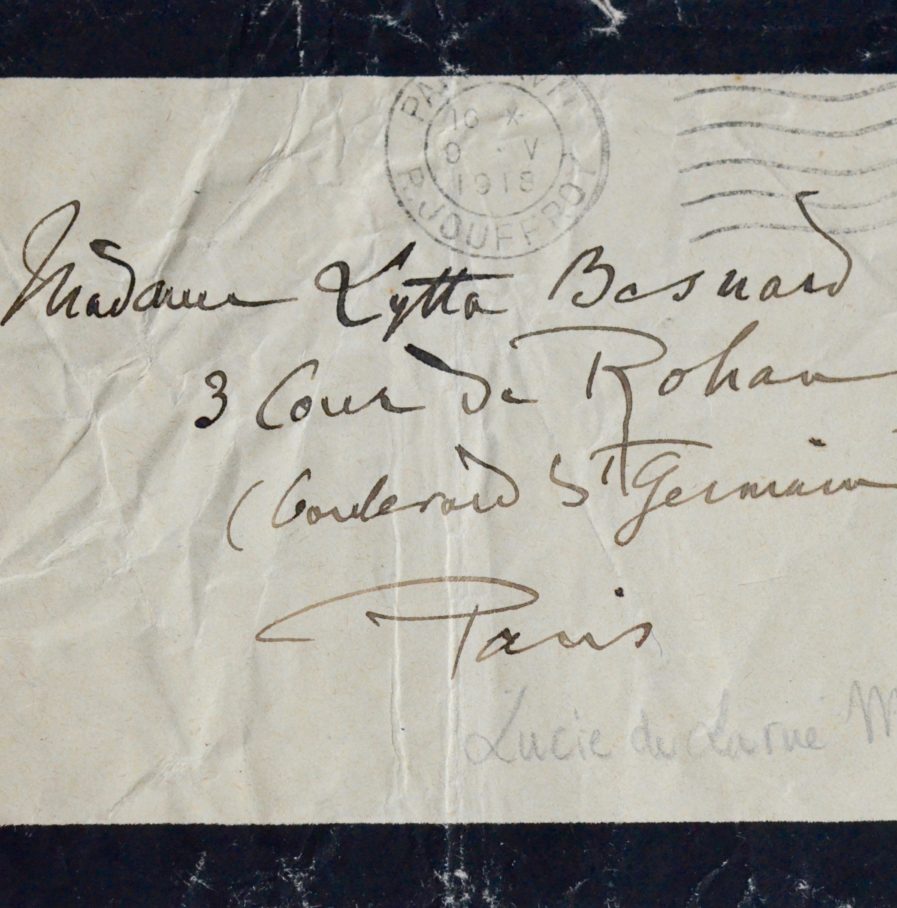 PARIS XVII
9 - V
1918
R. JOUFFROY
Madame Lytta Besnard
3 Cour de Rohan
(boulevard St Germain
Paris
Lucie de